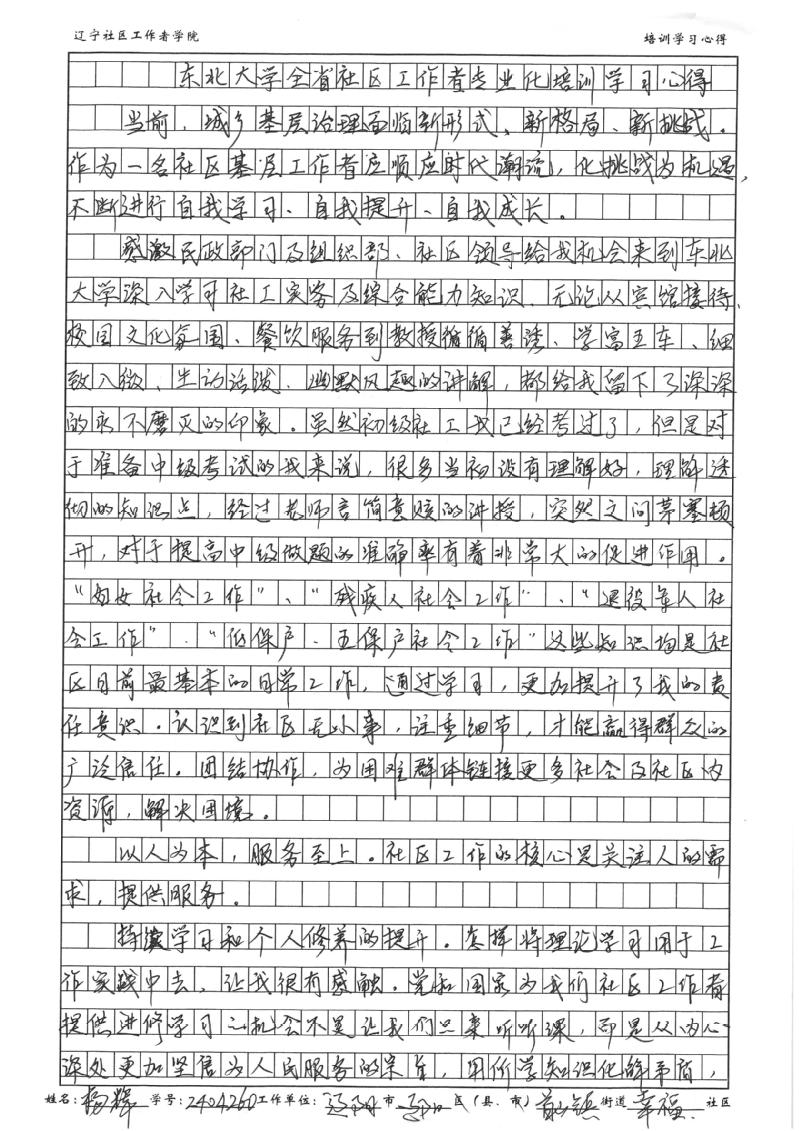 辽宁社区工作者学院 培训学习心得
东北大学全省社区工作者专业化培训学习心得
当前,城乡基层治理面临新形式、新格局、新挑战。
作为一名社区基层工作者应顺应时代潮流,化挑战为机遇,
不断进行自我学习、自我提升、自我成长。
感激民政部门及组织部、社区领导给我机会来到东北
大学深入学习社工实务及综合能力知识。无论从宾馆接待、
校园文化氛围、餐饮服务到教授循循善诱、学富五车、细
致入微、生动活泼、幽默风趣的讲解,都给我留下了深深
的永不磨灭的印象。虽然初级社工我已经考过了,但是对
于准备中级考试的我来说,很多当初没有理解好,理解透
彻的知识点,经过老师言简意赅的讲授,突然之间茅塞顿
开,对于提高中级做题的准确率有着非常大的促进作用。
“妇女社会工作”、“残疾人社会工作”、“退役军人社
会工作”、“低保户、五保户社会工作”这些知识均是社
区目前最基本的日常工作,通过学习,更加提升了我的责
任意识。认识到社区无小事,注重细节,才能赢得群众的
广泛信任。团结协作,为困难群体链接更多社会及社区内
资源,解决困境。
以人为本,服务至上。社区工作的核心是关注人的需
求,提供服务。
持续学习和个人修养的提升。怎样将理论学习用于工
作实践中去,让我很有感触。党和国家为我们社区工作者
提供进修学习之机会不是让我们只来听听课,而是从内心
深处更加坚信为人民服务的宗旨,用所学知识化解矛盾,
姓名:杨辉 学号:2404260 工作单位:辽阳市 辽阳区(县、市) 街道 幸福 社区